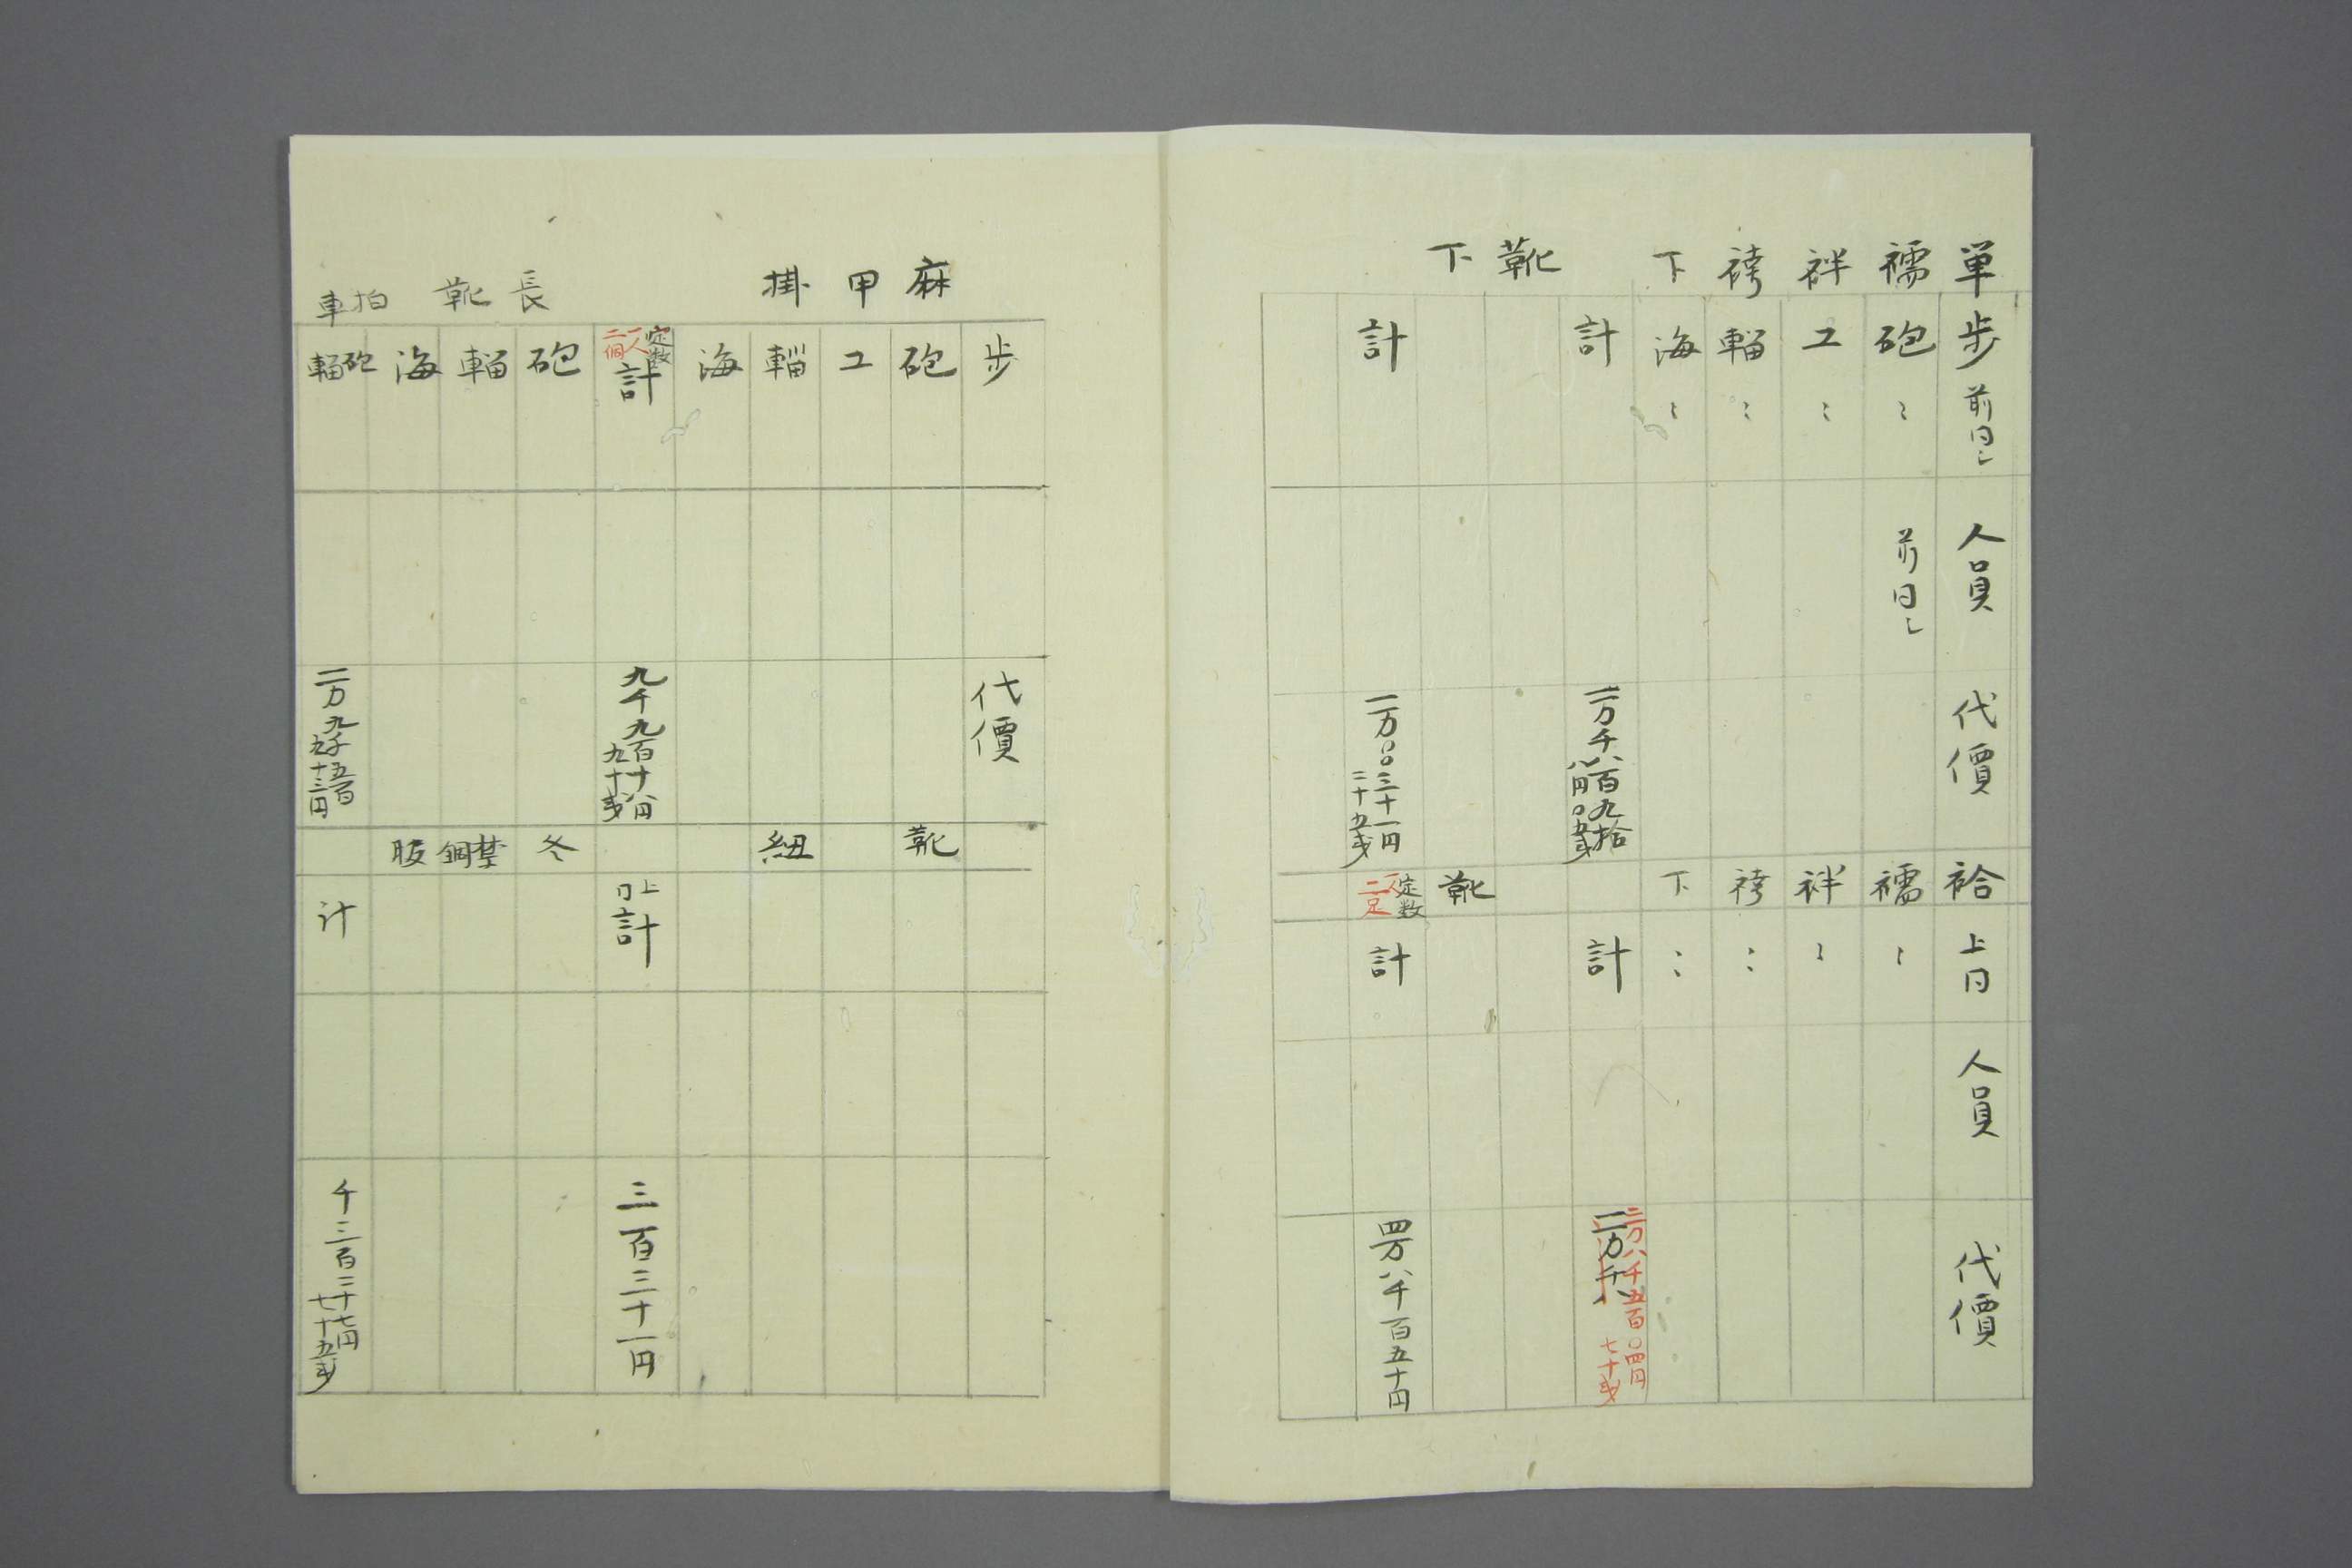 単襦袢袴下
歩 前同シ
砲 〻
工 〻
輜 〻
海 〻
計
人員
前同シ
代價
一万千八百九拾
八円〇五戔
靴下
計
一万〇〇三十一円
二十五戔
袷襦袢袴下
上同
〻
〻
〻
〻
計
人員
代價
三万八千五百〇四円
七十戔
二万千八
靴
定数
一人
二足
計
四万八千百五十円
麻甲掛
歩
砲
工
輜
海
定数
一人
二個
計
代價
九千九百十八円
九十戔
靴紐
上同
計
三百三十一円
長靴
砲
輜
海
拍車
砲
輜
二万九千五百
九十三円
冬
計
千三百二十七円
七十五戔